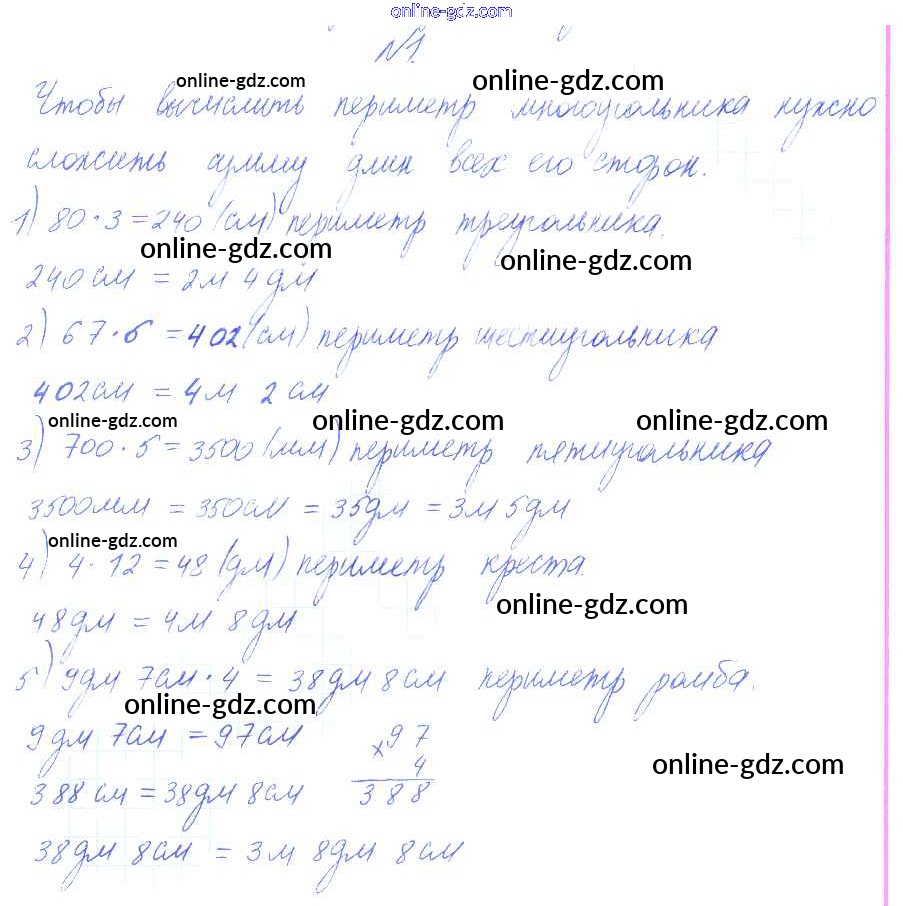 online-gdz.com
№1.
online-gdz.com online-gdz.com
Чтобы вычислить периметр многоугольника нужно
сложить сумму длин всех его сторон.
1) 80·3=240 (см) периметр треугольника.
online-gdz.com online-gdz.com
240см = 2м 4дм
2) 67·6=402(см) периметр шестиугольника
402см = 4м 2см
online-gdz.com online-gdz.com online-gdz.com
3) 700·5=3500(мм) периметр пятиугольника
3500мм = 350см = 35дм = 3м 5дм
online-gdz.com
4) 4·12=48(дм) периметр креста.
online-gdz.com
48дм = 4м 8дм
5) 9дм 7см·4 = 38дм 8см периметр ромба.
online-gdz.com
9дм 7см = 97см
×97
4
online-gdz.com
388см = 38дм 8см
388
38дм 8см = 3м 8дм 8см